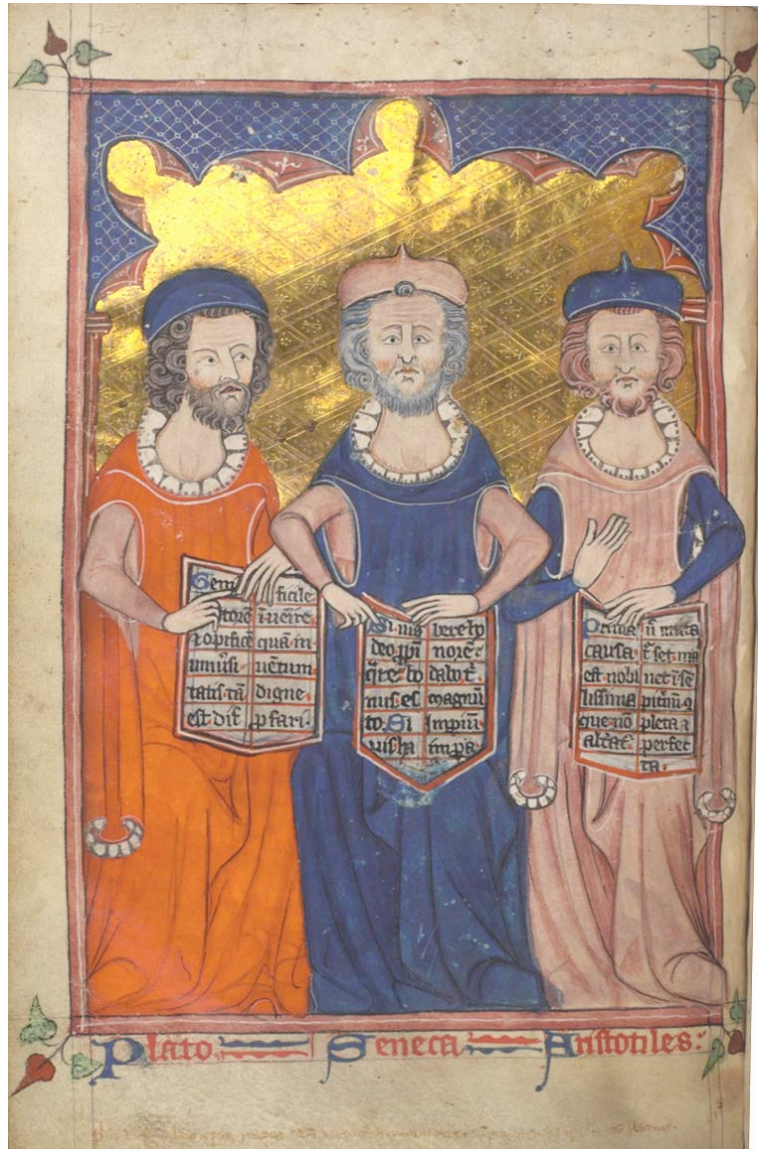 Geni
torē
⁊ opificē
uniūsi
tatis tā
est dif
ficile
īuēire
quā in
uētum
digne
ꝓfari.
Si uis
deo ꝓpī
q̄re bo
nus es
to. Si
uis ha
bere ho
norē ⁊
dabo t̄
magnū
Impiū
impa
Prima
causa
est nobi
lissima
que nō
alt̄at̄
n̄ muta
t̄ set ma
net ī se
pleta ⁊
perfec
ta.
Plato Seneca Aristotiles: